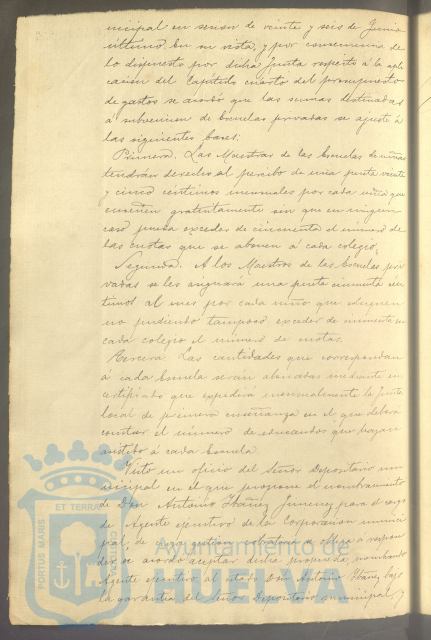 nicipal en sesion de veinte y seis de Junio
último. En su vista, y por consecuencia de
lo dispuesto por dicha Junta respecto á la apli
cacion del Capítulo cuarto del presupuesto
de gastos se acordó que las sumas destinadas
á subvencion de Escuelas privadas se ajuste á
las siguientes bases:
Primera. Las Maestras de las Escuelas de niñas
tendrán derecho al percibo de una peseta veinte
y cinco centimos mensuales por cada niña que
enseñen gratuitamente sin que en ningun
caso pueda exceder de cincuenta el número de
las cuotas que se abonen á cada colegio.
Segunda. A los Maestros de las Escuelas pri
vadas se les asignará una peseta cincuenta cen
timos al mes por cada niño que eduquen
no pudiendo tampoco exceder de cincuenta en
cada colegio el número de cuotas.
Tercera. Las cantidades que correspondan
á cada Escuela serán abonadas mediante un
certificado que expedirá mensualmente la Junta
local de primera enseñanza en el que deberá
constar el número de educandos que hayan
asistido á cada Escuela.
Visto un oficio del Señor Depositario mu
nicipal en el que propone el nombramiento
de Don Antonio Ibañez Jimenez para el cargo
de Agente ejecutivo de la Corporacion munici
pal, de cuya gestion cobratoria se obliga á respon
der se acordó aceptar dicha propuesta, nombrando
Agente ejecutivo al citado Don Antonio Ibañez bajo
la garantía del Señor Depositario municipal
PORTUS MARIS ET TERRAE CUSTODIA
Ayuntamiento de
HUELVA